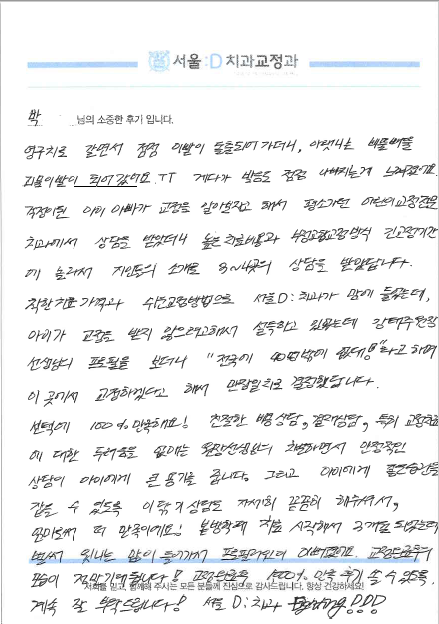 서울:D 치과교정과
박 님의 소중한 후기 입니다.
영구치로 갈면서 점점 이빨이 돌출되어 가더니, 아랫니는
이빨이 되어 갔어요.ㅠㅠ 게다가 발음도 점점 나빠지는게 느껴졌어요.
걱정이된 아이 아빠가 교정을 알아보자고 해서 평소가던 어린이교정전문
치과에서 상담을 받았더니 높은 치료비용과 부정교합교정방식 긴교정기간
에 놀라서 지인들의 소개로 3~4곳의 상담을 받았답니다.
착한 치료 가격과 쉬운교정방법으로 서울D:치과가 맘에 들었는데,
아이가 교정을 받지 않으려고해서 설득하고 있었는데 강태우원장
선생님의 프로필을 보더니 "전국에 40명밖에 없대!"라고 하며
이 곳에서 교정하겠다고 해서 만장일치로 결정했답니다.
선택에 100%만족해요! 친절한 상담, 상담, 특히 교정치료
에 대한 두려움을 없애는 원장선생님의 차별하면서 안정적인
상담이 아이에게 큰 용기를 줍니다. 그리고 아이에게
같을 수 있도록 이닦기 상담도 자세히 꼼꼼히 해주셔서,
엄마로써 더 만족이에요! 치료 시작해서 3개월 되었는데
벌써 윗니는 많이 들어가서 프로필라인이 이뻐졌어요. 교정완료후의
모습이 정말기대됩니다! 교정완료후 100% 만족 후기 쓸 수 있도록,
저희를 믿고, 함께해 주시는 모든 분들께 진심으로 감사드립니다. 항상 건강하세요!
계속 잘 부탁드립니다! 서울 D:치과 !!!